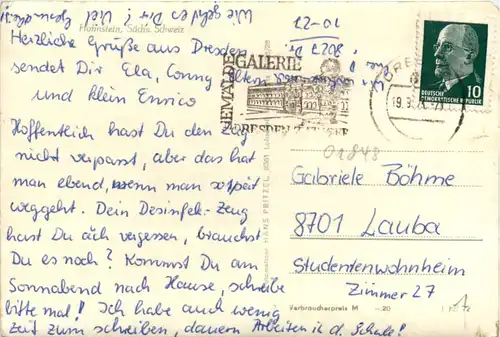 Hohnstein, Sächs. Schweiz
Herzliche Grüße aus Dresden
sendet Dir Ela, Conny, Eltern
und klein Enrico
Hoffentlich hast Du den Zug
nicht verpasst, aber das hat
man ebend, wenn man so spät
weggeht. Dein Desinfek.-Zeug
hast Du auch vergessen, brauchst
Du es noch? Kommst Du am
Sonnabend nach Hause, schreibe
bitte mal! Ich habe auch wenig
Zeit zum schreiben, dauern Arbeiten i. d. Schule!
Wie geht es Dir? Viel
GEMÄLDE
GALERIE
DRESDEN
DEUTSCHE
DEMOKRATISCHE REPUBLIK
10
01848
Gabriele Böhme
8701 Lauba
Studentenwohnheim
Zimmer 27
HANS PRITZEL
Verbraucherpreis M -.20